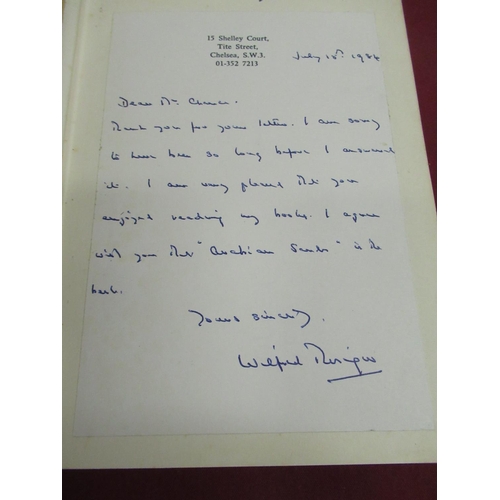 15 Shelley Court,
Tite Street,
Chelsea, S.W.3.
01-352 7213
July 1984
Dear Mr.
Thank you for your letter. I am sorry
to have been so long before I answered
it. I am very pleased that you
enjoyed reading my books. I agree
with you that "Arabian Sands" is the
best.
Yours sincerely,
Wilfred Thesiger